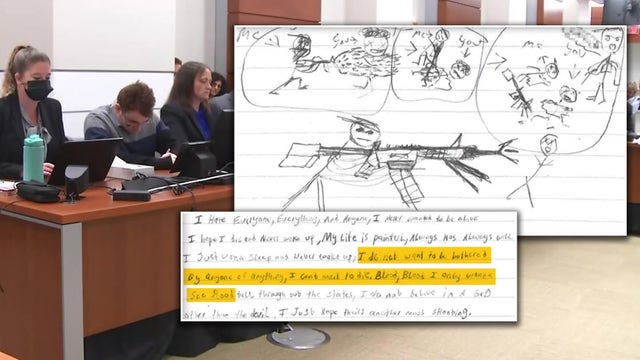 Me You Me You Me You
I Hate Everyone, Everything, And Anyone, I never wanted to be alive
I hope I did not Never wake up, My Life is painful, Always has Always will
I Just wana sleep and Never wake up, I do not want to be bothered
By Anyone or anything, I cant wait to die, Blood, Blood I only wanna
See Blood through out the states, I do not believe in A GOD
other than the devil, I Just Hope theirs another mass shooting.